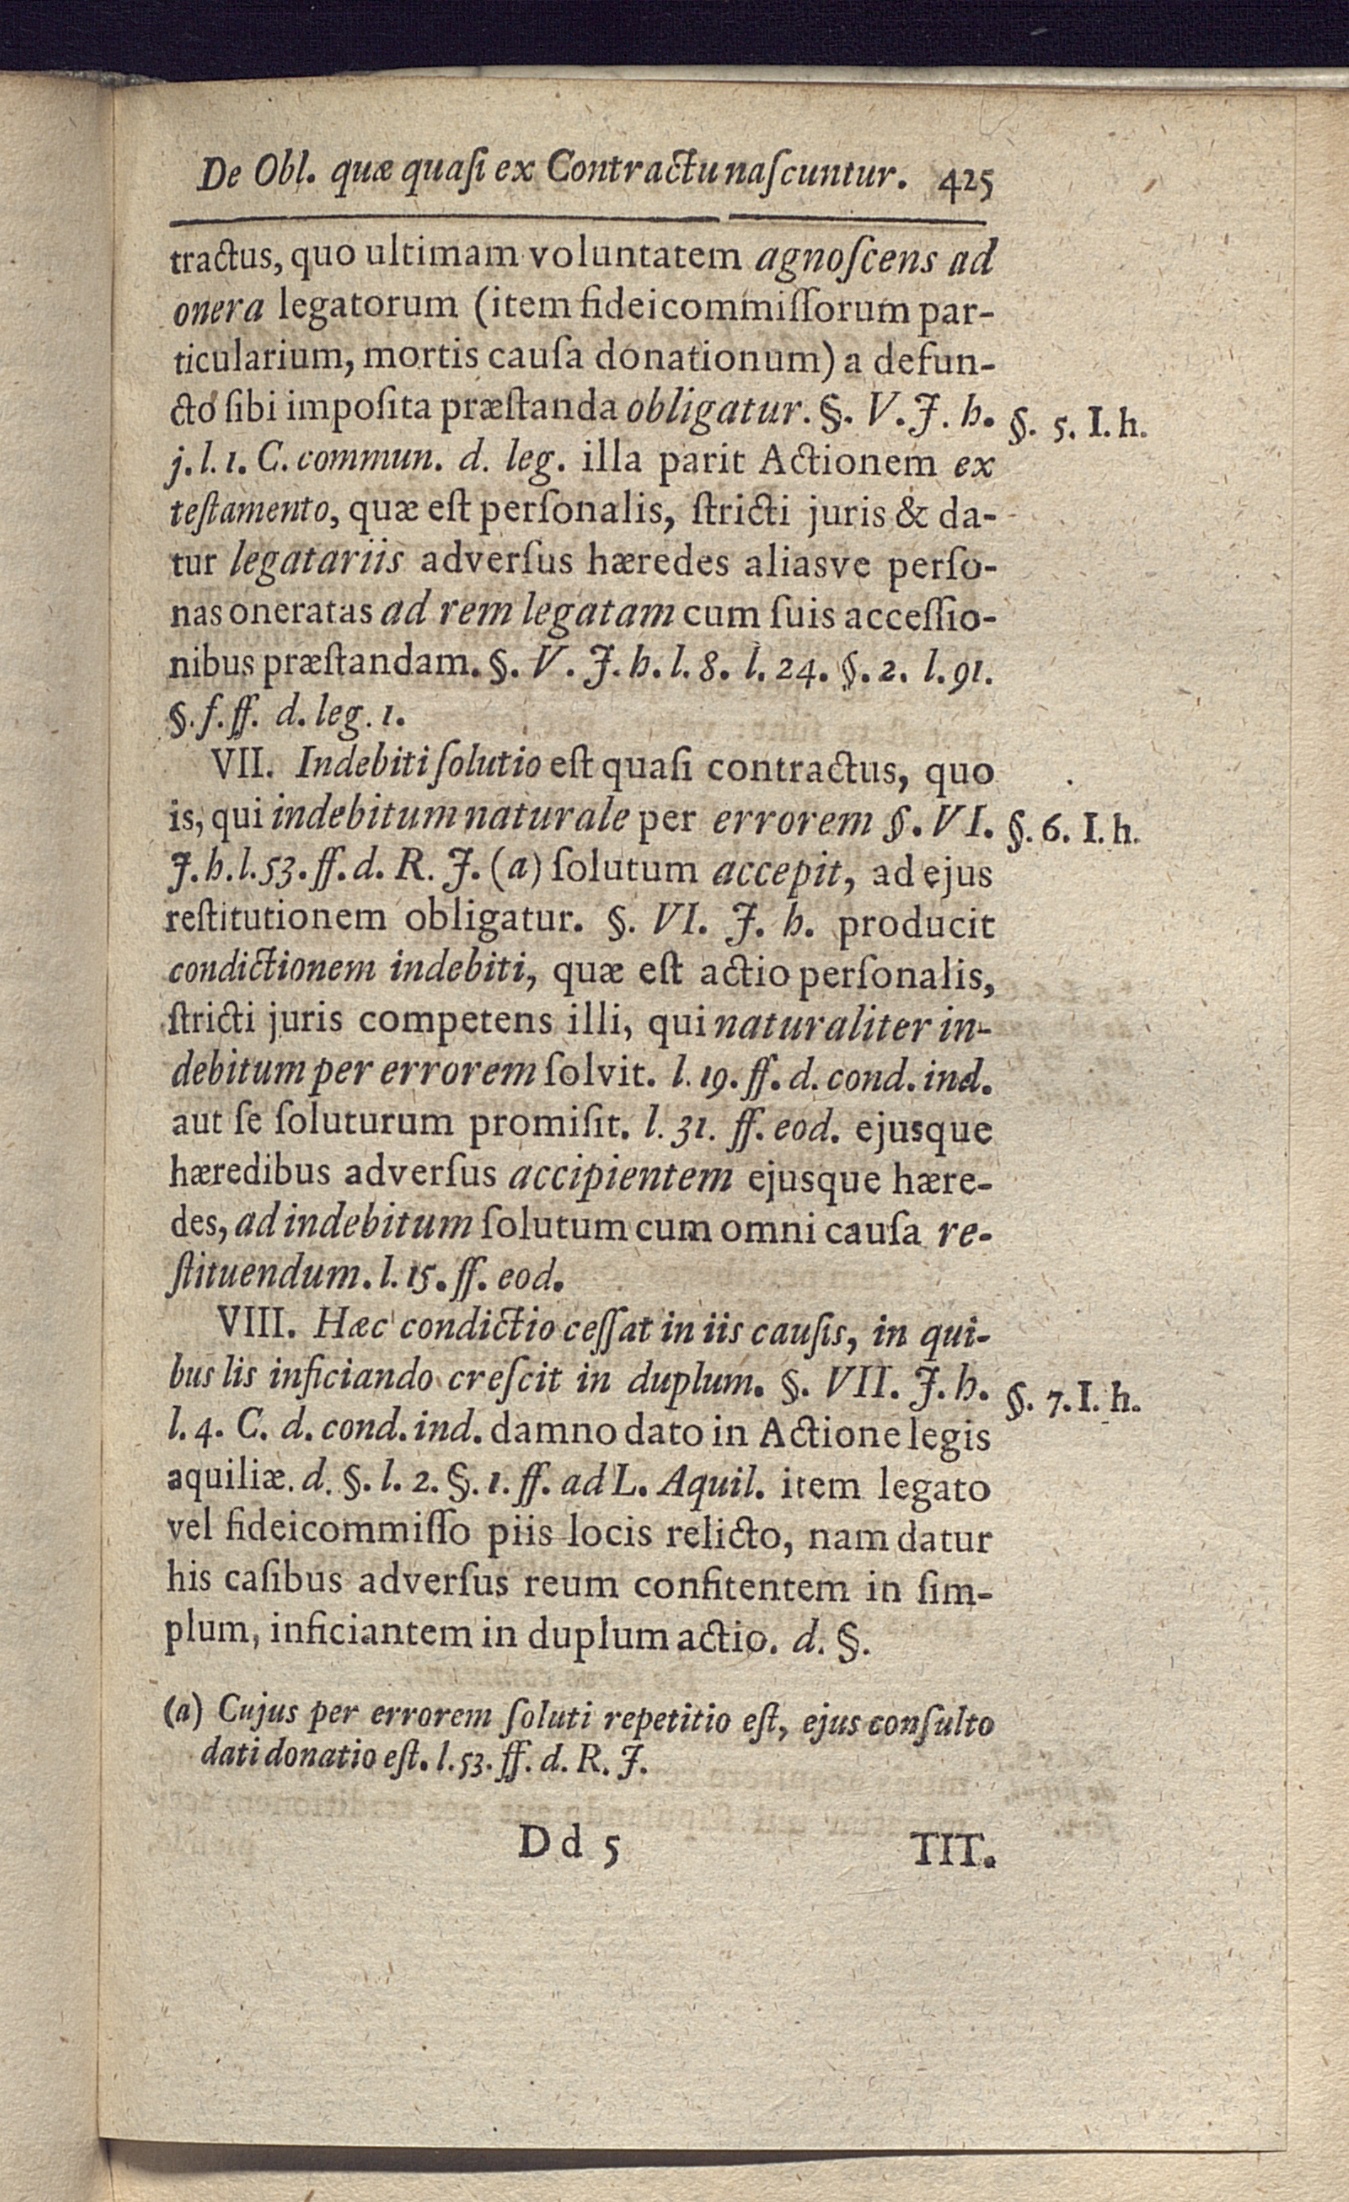 De Obl. quæ quaſi ex Contractu naſcuntur. 425
tractus, quo ultimam voluntatem agnoſcens ad
onera legatorum (item fideicommiſſorum par-
ticularium, mortis cauſa donationum) a defun-
cto ſibi impoſita præſtanda obligatur. §. V. J. h. §. 5. I. h.
j. l. 1. C. commun. d. leg. illa parit Actionem ex
teſtamento, quæ eſt perſonalis, ſtricti juris & da-
tur legatariis adverſus hæredes aliasve perſo-
nas oneratas ad rem legatam cum ſuis acceſſio-
nibus præſtandam. §. V. J. h. l. 8. l. 24. §. 2. l. 91.
§. f. ff. d. leg. 1.
VII. Indebiti ſolutio eſt quaſi contractus, quo
is, qui indebitum naturale per errorem §. VI. §. 6. I. h.
J. h. l. 53. ff. d. R. J. (a) ſolutum accepit, ad ejus
reſtitutionem obligatur. §. VI. J. h. producit
condictionem indebiti, quæ eſt actio perſonalis,
ſtricti juris competens illi, qui naturaliter in-
debitum per errorem ſolvit. l. 19. ff. d. cond. ind.
aut ſe ſoluturum promiſit. l. 31. ff. eod. ejusque
hæredibus adverſus accipientem ejusque hære-
des, ad indebitum ſolutum cum omni cauſa re-
ſtituendum. l. 15. ff. eod.
VIII. Hæc condictio ceſſat in iis cauſis, in qui-
bus lis inficiando creſcit in duplum. §. VII. J. h. §. 7. I. h.
l. 4. C. d. cond. ind. damno dato in Actione legis
aquiliæ. d. §. l. 2. §. 1. ff. ad L. Aquil. item legato
vel fideicommiſſo piis locis relicto, nam datur
his caſibus adverſus reum confitentem in ſim-
plum, inficiantem in duplum actio. d. §.
(a) Cujus per errorem ſoluti repetitio eſt, ejus conſulto
dati donatio eſt. l. 53. ff. d. R. J.
D d 5 TIT.